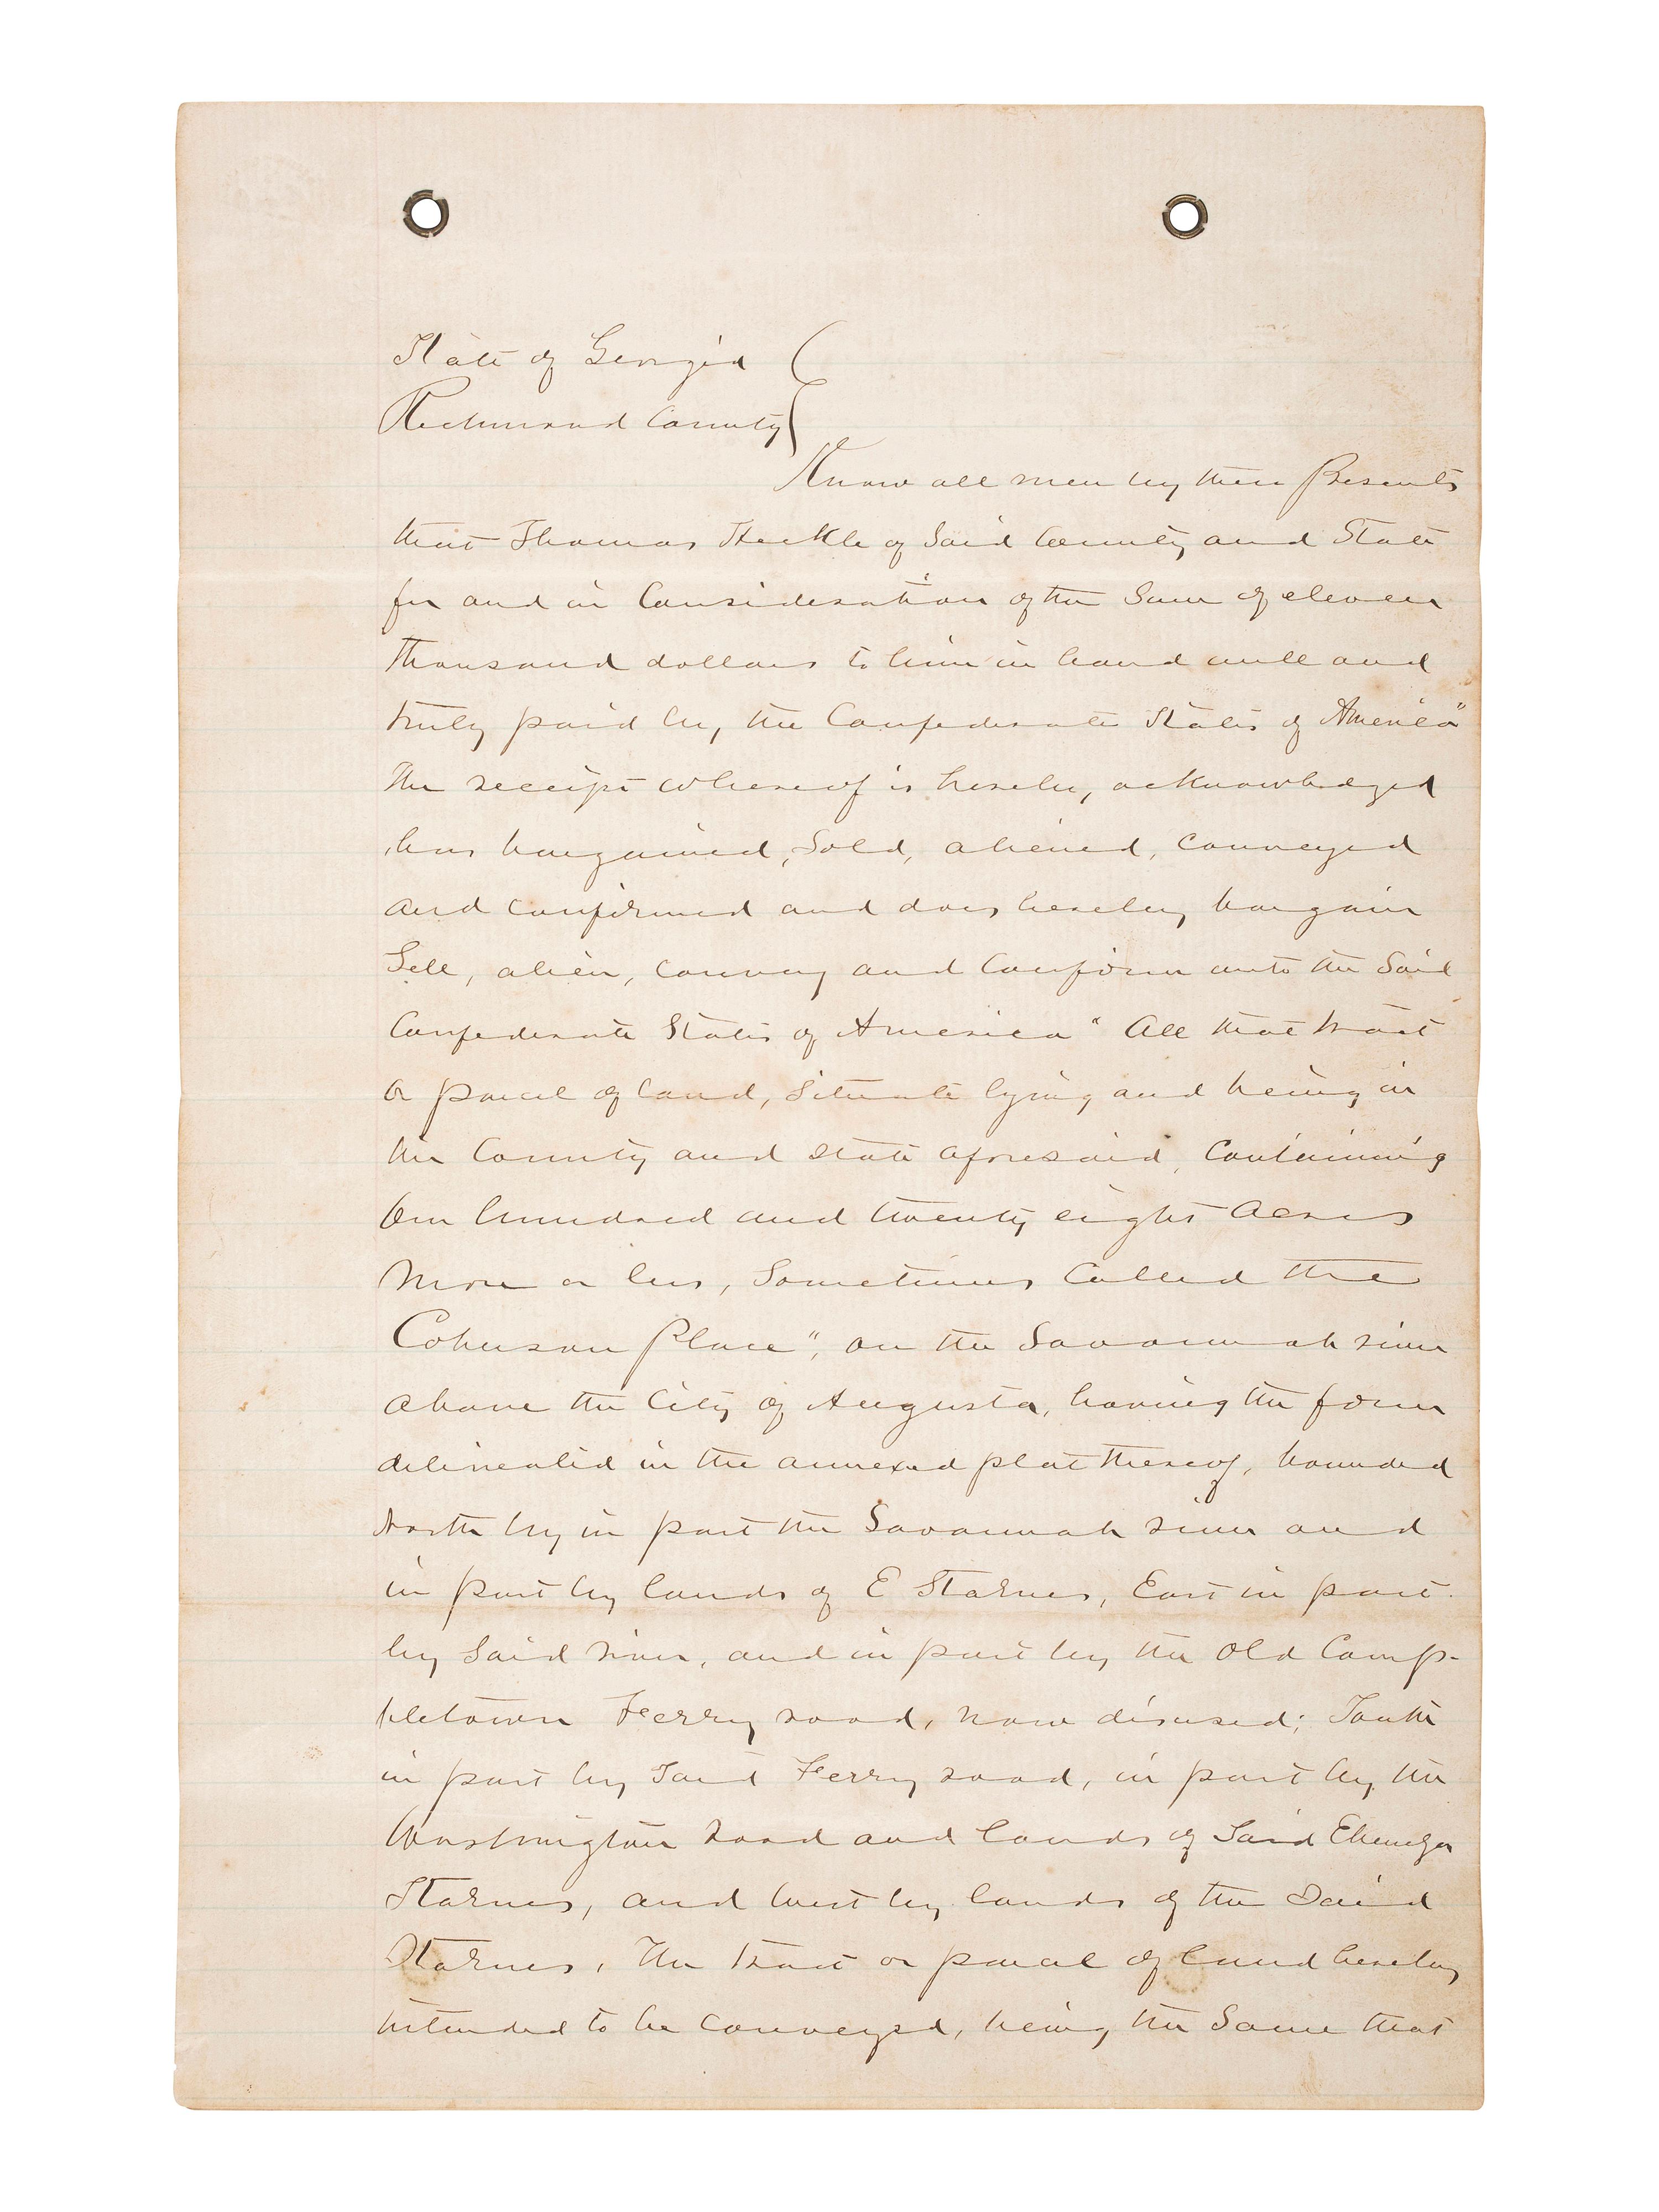 State of Georgia
Richmond County
Know all men by these Presents
that Thomas Heckle of Said County and State
for and in Consideration of the Sum of eleven
thousand dollars to him in hand well and
truly paid by, the Confederate States of America"
The receipt whereof is hereby, acknowledged
has bargained, Sold, aliened, conveyed
and confirmed and does hereby bargain
Sell, alien, convey and Confirm unto the Said
Confederate States of America" All that tract
or parcel of land, Situate lying and being in
the County and State aforesaid, Containing
One hundred and twenty eight Acres
More or less, Sometimes Called the
Place", on the Savannah river
above the City of Augusta, having the form
delineated in the annexed plat thereof, bounded
North by in part the Savannah river and
in part by lands of E Starnes, East in part
by Said river, and in part by the Old Camp-
beletown Ferry road, now disused; South
in part by Said Ferry road, in part by the
Washington road and lands of Said Ebenezer
Starnes, and West by lands of the Said
Starnes, The tract or parcel of land hereby
intended to be conveyed, being the Same that